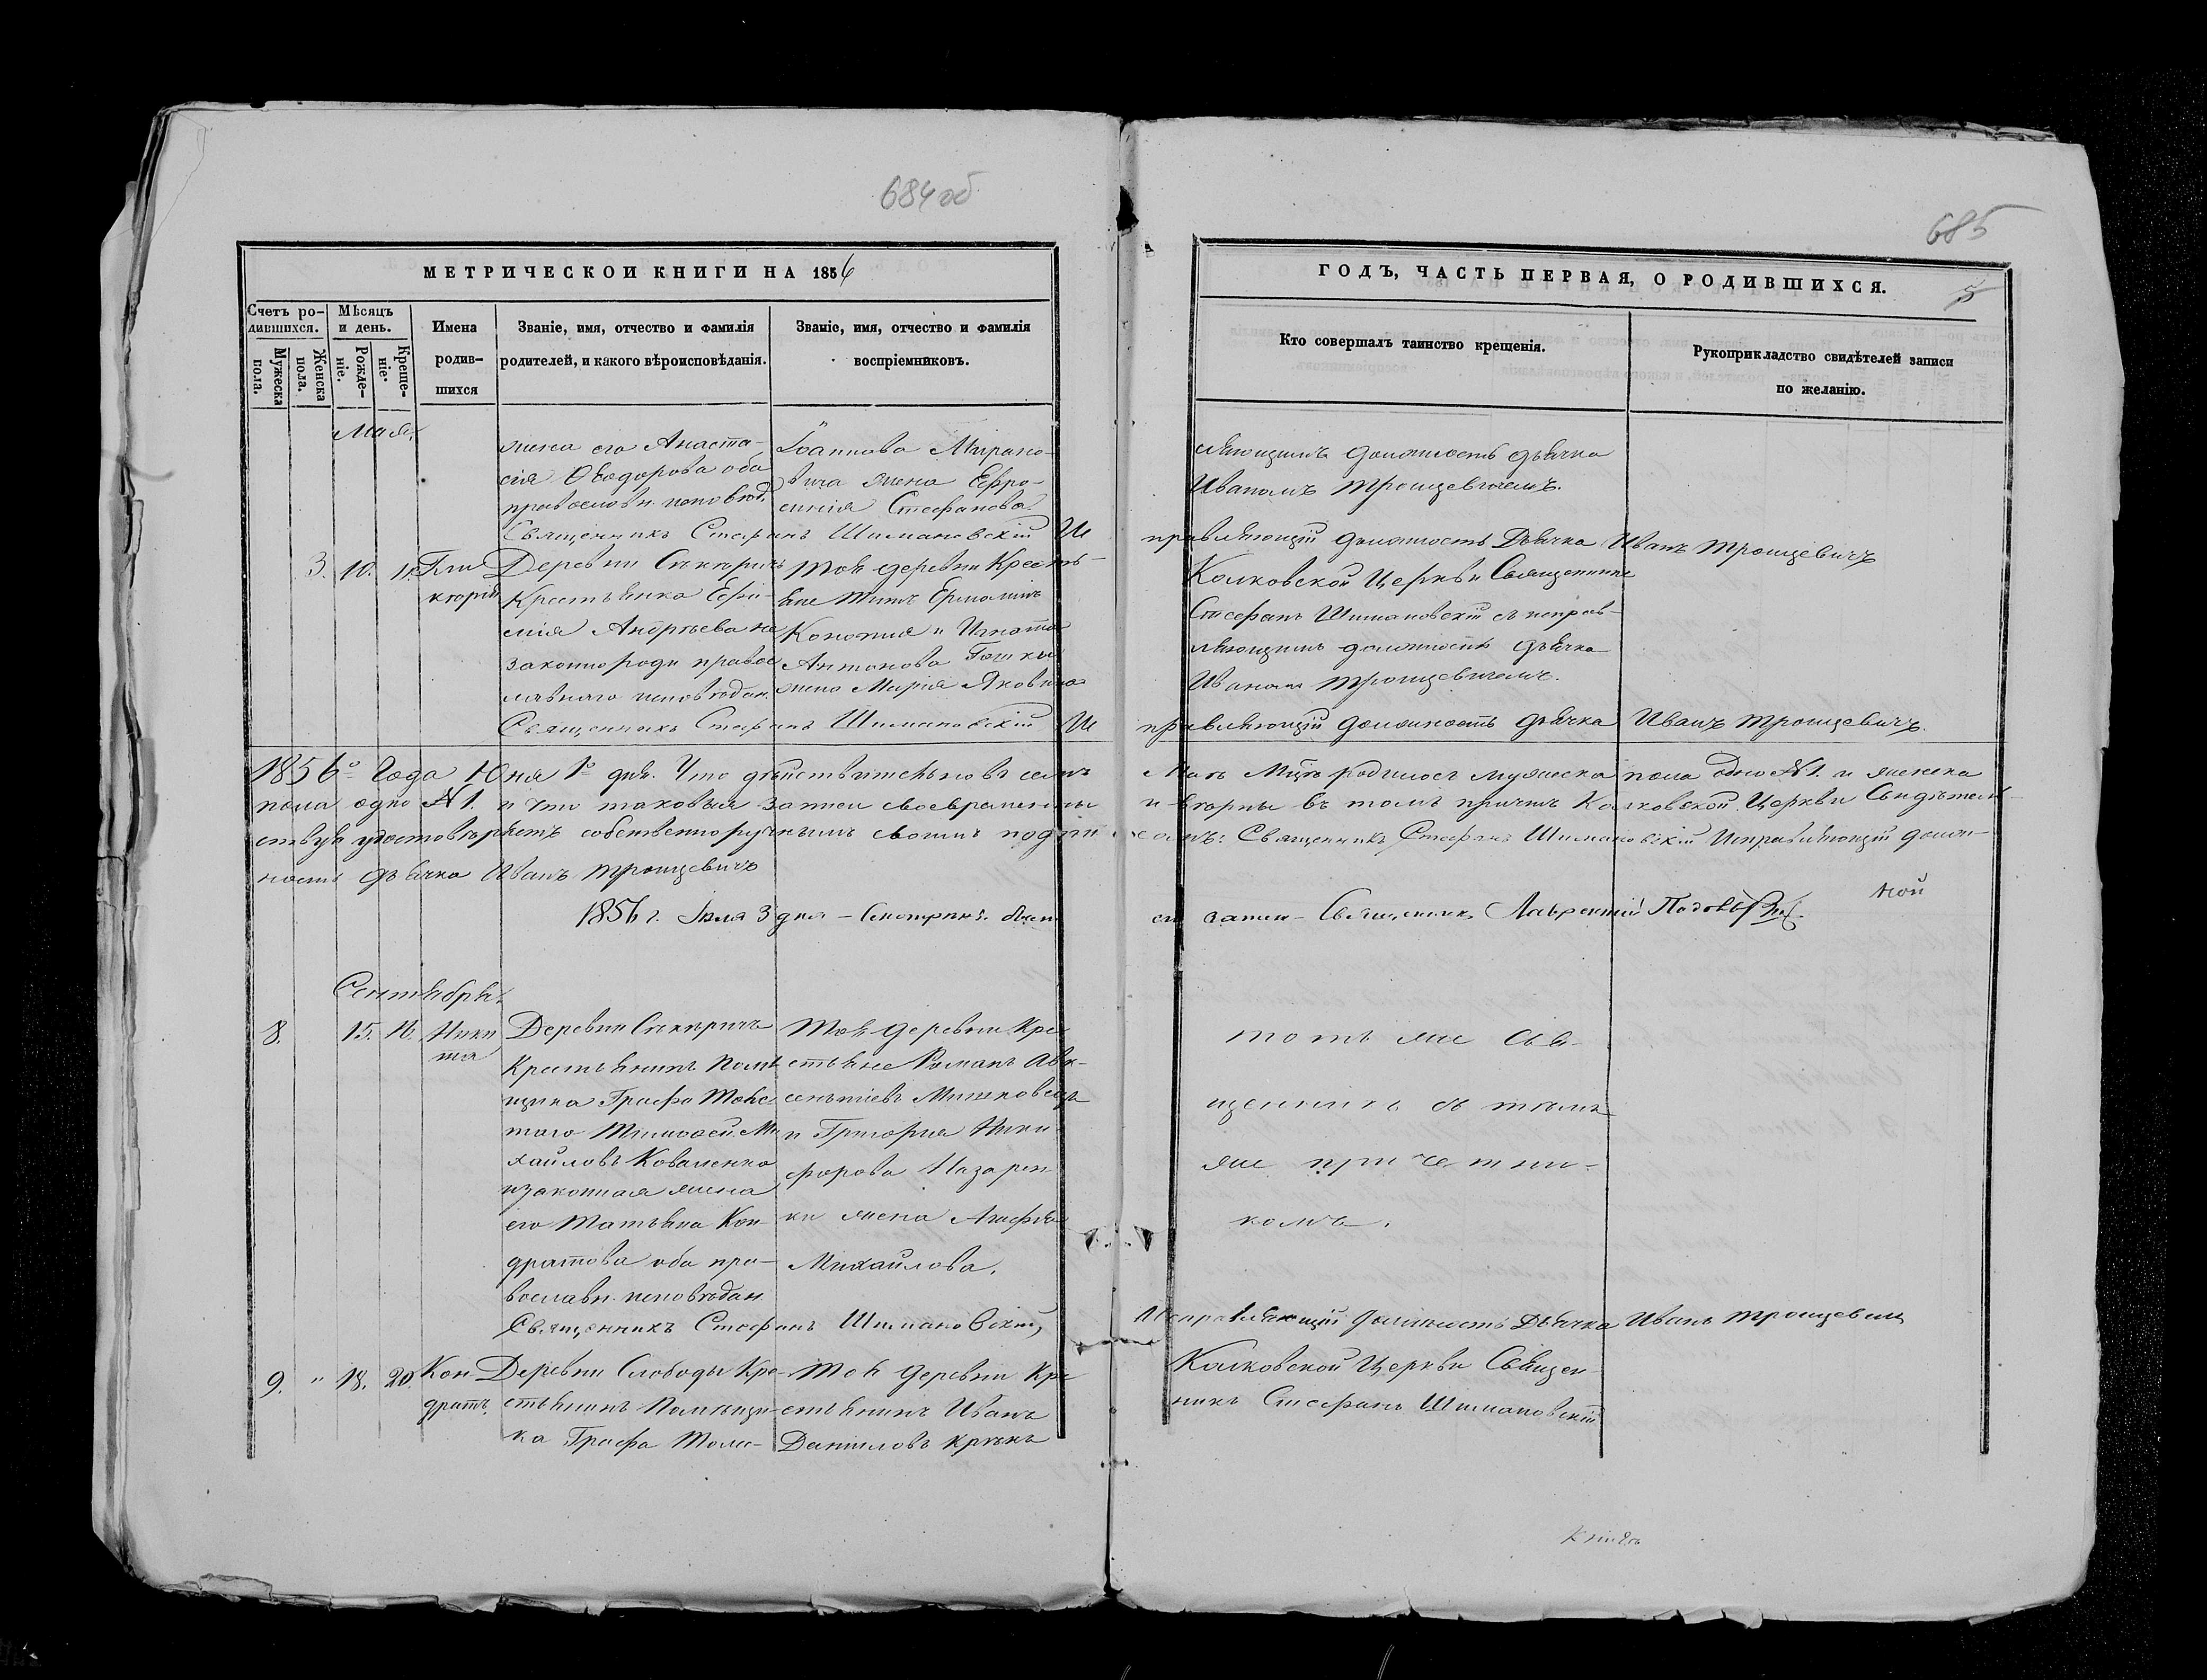 684 об
685
МЕТРИЧЕСКОЙ КНИГИ НА 1856
ГОДЪ, ЧАСТЬ ПЕРВАЯ, О РОДИВШИХСЯ.
5
Счетъ ро-
дившихся.
Мужеска
пола.
Женска
пола.
Мѣсяцъ
и день.
Рожде-
ніе.
Креще-
ніе.
Имена
родив-
шихся
Званіе, имя, отчество и фамилія
родителей, и какого вѣроисповѣданія.
Званіе, имя, отчество и фамилія
воспріемниковъ.
Кто совершалъ таинство крещенія.
Рукоприкладство свидѣтелей записи
по желанію.
Мая
жена его Анаста-
сія Ѳеодорова оба
православн. исповѣд.
Іоаннова Мирано-
вича жена Ефро-
синія Стефанова
вляющимъ должность дьячка
Иваномъ Троицевичемъ.
Священникъ Стефанъ Шимановскій Ис
правляющій должность Дьячка Иванъ Троицевичъ
3. 10. 11.
Гли
керія
Деревни Секиричъ
Крестьянка Ефи-
мія Андреева не
законнороди правос
лавнаго исповѣдан.
Той деревни Крестьь-
яне Титъ Ермолинъ
Конония и Игната
Антонова
жена Марія Яковлева
Колковской Церкви Священникъ
Стефанъ Шимановскій съ исправ-
ляющимъ должность дьячка
Иваномъ Троицевичемъ.
Священникъ Стефанъ Шимановскій Ис
правляющій должность дьячка Иванъ Троицевичъ.
1856го Года Юня 1го дня. Что дѣйствительно въ семъ Маѣ Мцѣ родилось мужеска пола одно №1. и женска
пола одно №1. и что таковыя записи своевременны и вѣрны въ томъ причтъ Колковской Церкви Свидѣтель-
ствуя удостовѣряетъ собственноручнымъ своимъ подписомъ: Священникъ Стефанъ Шимановскій Исправляющій долж-
ность дьячка Иванъ Троицевичъ
1856 г. Іюля 3 дня – Священникъ Лаврентій
Сентябрь.
8. 15. 16.
Ники
та
Деревни Секиричъ
Крестьянинъ Помѣ
щика Графа Толс
того Тимофей Ми
хайловъ Коваленко
и законная жена
его Татьяна Кон-
дратова оба пра-
вославн. исповѣдан
Той деревни Кре
стьяне Романъ Авк-
сентіевъ
и Григорія Ники
форова Назарен
ки жена Агафія
Михайлова.
тотъ же Свя-
щенникъ съ тѣмъ
же причетни-
комъ.
Священникъ Стефанъ Шимановскій
Исправляющій должность Дьячка Иванъ Троицевичъ
9. " 18. 20.
Кон
дратъ.
Деревни Слободы Кре-
стьянинъ Помѣщи-
ка Графа Толс-
Той деревни Кре
стьянинъ Иванъ
Даниловъ
Колковской Церкви Священ-
никъ Стефанъ Шимановскій